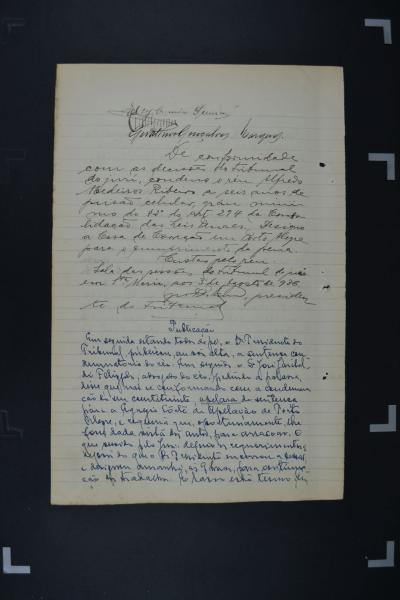 De conformidade
com as decisões do Tribunal
do juri, condemno o réu Alfredo
Medeiros Ribeiro a seis annos de
prisão cellular, gráu mini
mo do § 2º do Art. 294 da Conso
lidação das Leis Penaes. Designo
a Casa de Correção em Porto Alegre
para o cumprimento da pena.
Custas pelo réu.
Sala das sessões do Tribunal do juri
em Sta. Maria, aos 3 de Agosto de 1936
presiden
te do Tribunal
Publicação
Em seguida estando todos de pé, o Dr. Presidente do
Tribunal publicou, em voz alta, a sentença con
demnatoria do réo. Em seguida o Dr. José
de, advogado do réo, pedindo a palavra,
disse que não se conformando com a condemna
ção de seu constituinte, apelava da sentença
para a Egregia Côrte de Apelação de Porto
Alegre, e requeria que, oportunamente, lhe
fosse dada vista dos autos, para arrazoar. O
que ouvido pelo Juiz deferiu o requerimento,
depois do que o Dr. Presidente encerrou a sessão
e designou amanhã, ás 9 horas, para continua
ção dos trabalhos. E lavro este termo. Eu